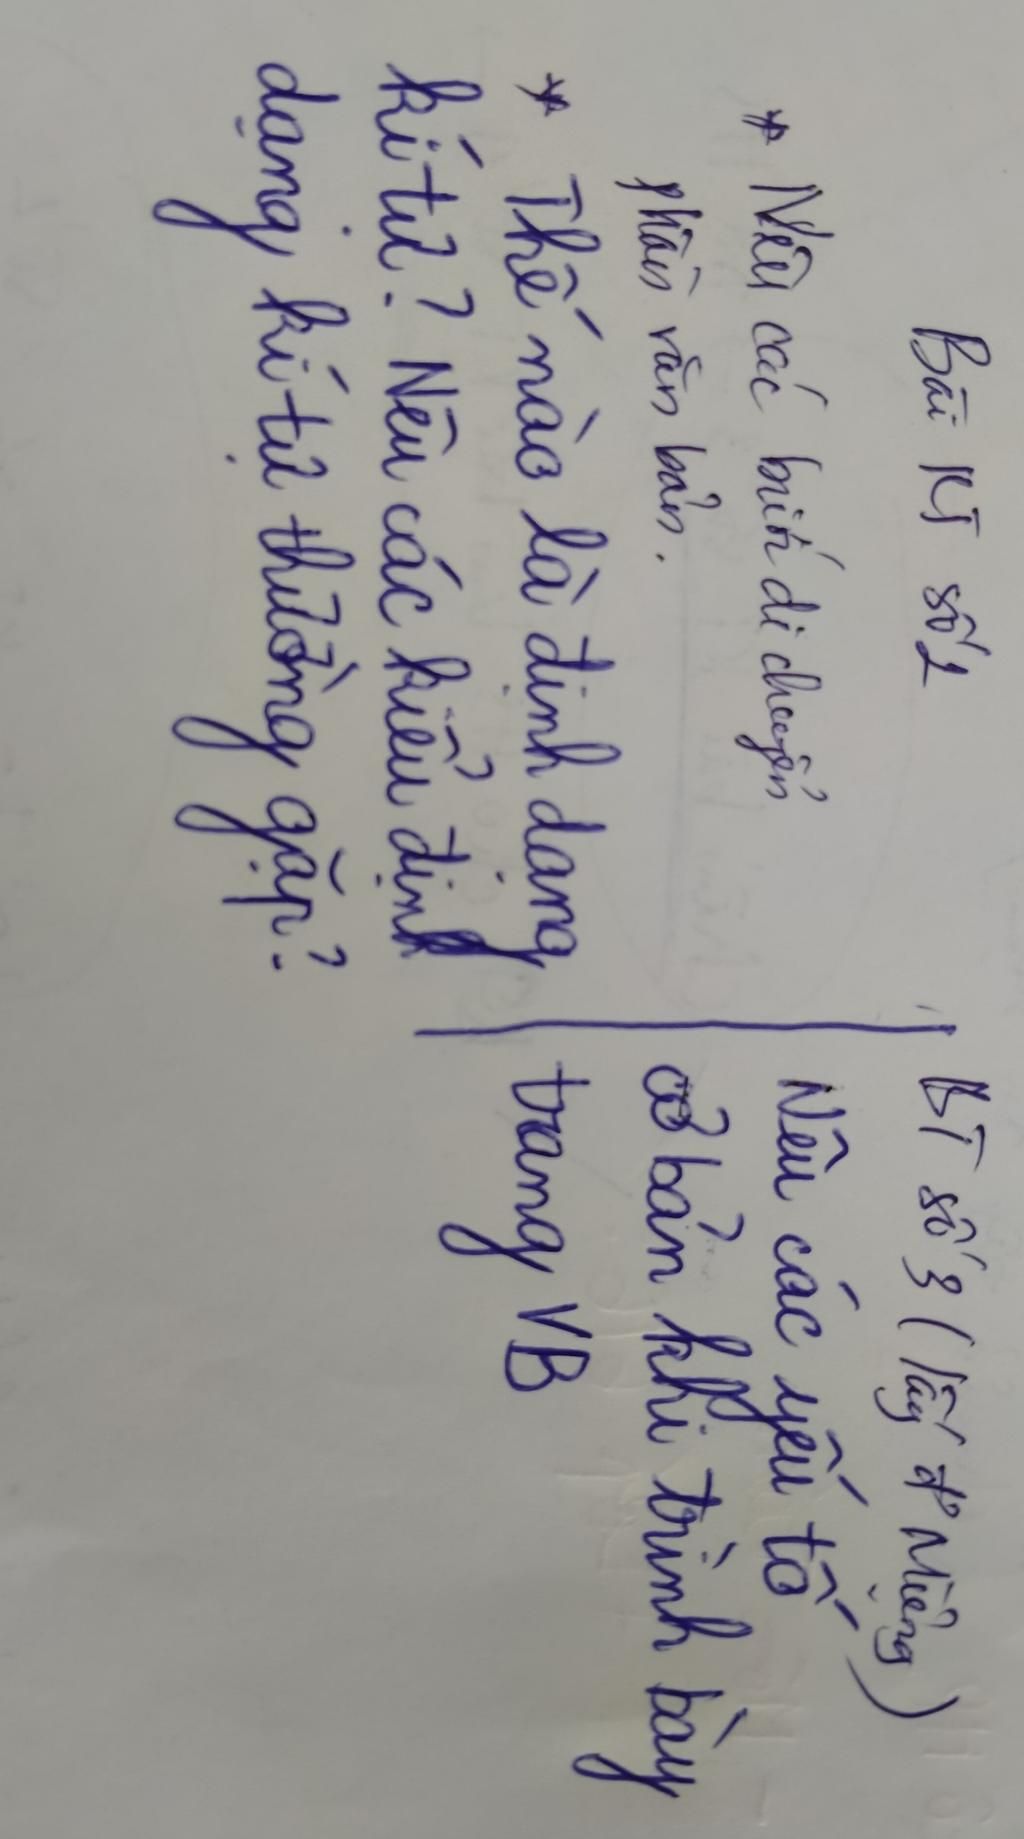 Bài KT số 2
* Nêu các bước di chuyển
phần văn bản.
* Thế nào là định dạng
kí tự? Nêu các kiểu định
dạng kí tự thường gặp?
BT số 3 (lấy đ' Miệng)
Nêu các yếu tố
cơ bản khi trình bày
trang VB